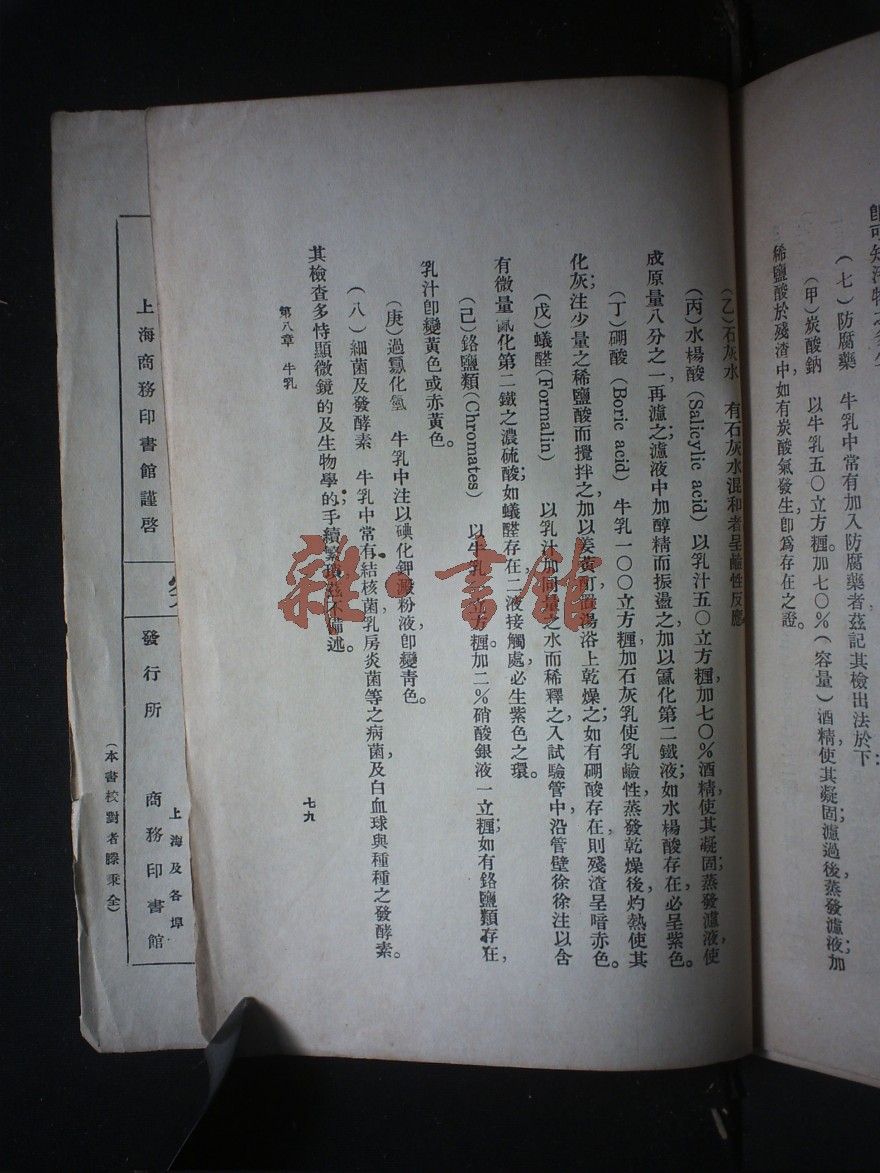 （七）防腐藥　牛乳中常有加入防腐藥者，茲記其檢出法於下：
（甲）炭酸鈉　以牛乳五〇立方糎，加七〇％（容量）酒精使其凝固；濾過後蒸發濾液，加
稀鹽酸於殘渣中，如有炭酸氣發生，卽爲存在之證。
（乙）石灰水　有石灰水混和者呈鹼性反應
（丙）水楊酸（Salicylic acid）　以乳汁五〇立方糎，加七〇％酒精使其凝固；蒸發濾液使
成原量八分之一，再濾之；濾液中加醇精而振盪之，加以氯化第二鐵液；如水楊酸存在，必呈紫色。
（丁）硼酸（Boric acid）　牛乳一〇〇立方糎，加石灰乳使乳鹼性，蒸發乾燥後，灼熱使其
化灰；注少量之稀鹽酸而攪拌之，加以姜黃，置湯浴上乾燥之；如有硼酸存在，則殘渣呈暗赤色。
（戊）蟻醛（Formalin）　以乳汁加同量之水而稀釋之，入試驗管中，沿管壁徐徐注以含
有微量氯化第二鐵之濃硫酸；如蟻醛存在，二液接觸處，必生紫色之環。
（己）鉻鹽類（Chromates）　以牛乳立方糎，加二％硝酸銀液一立糎；如有鉻鹽類存在，
乳汁卽變黃色或赤黃色。
（庚）過氧化氫　牛乳中注以碘化鉀澱粉液，卽變靑色。
（八）細菌及發酵素　牛乳中常有結核菌乳房炎菌等之病菌，及白血球與種種之發酵素。
其檢查多恃顯微鏡的及生物學的手續，繁瑣茲不備述。
第八章　牛乳
七九
雜·書館
上海及各埠
發行所　商務印書館
上海商務印書館謹啓
（本書校對者滕秉全）